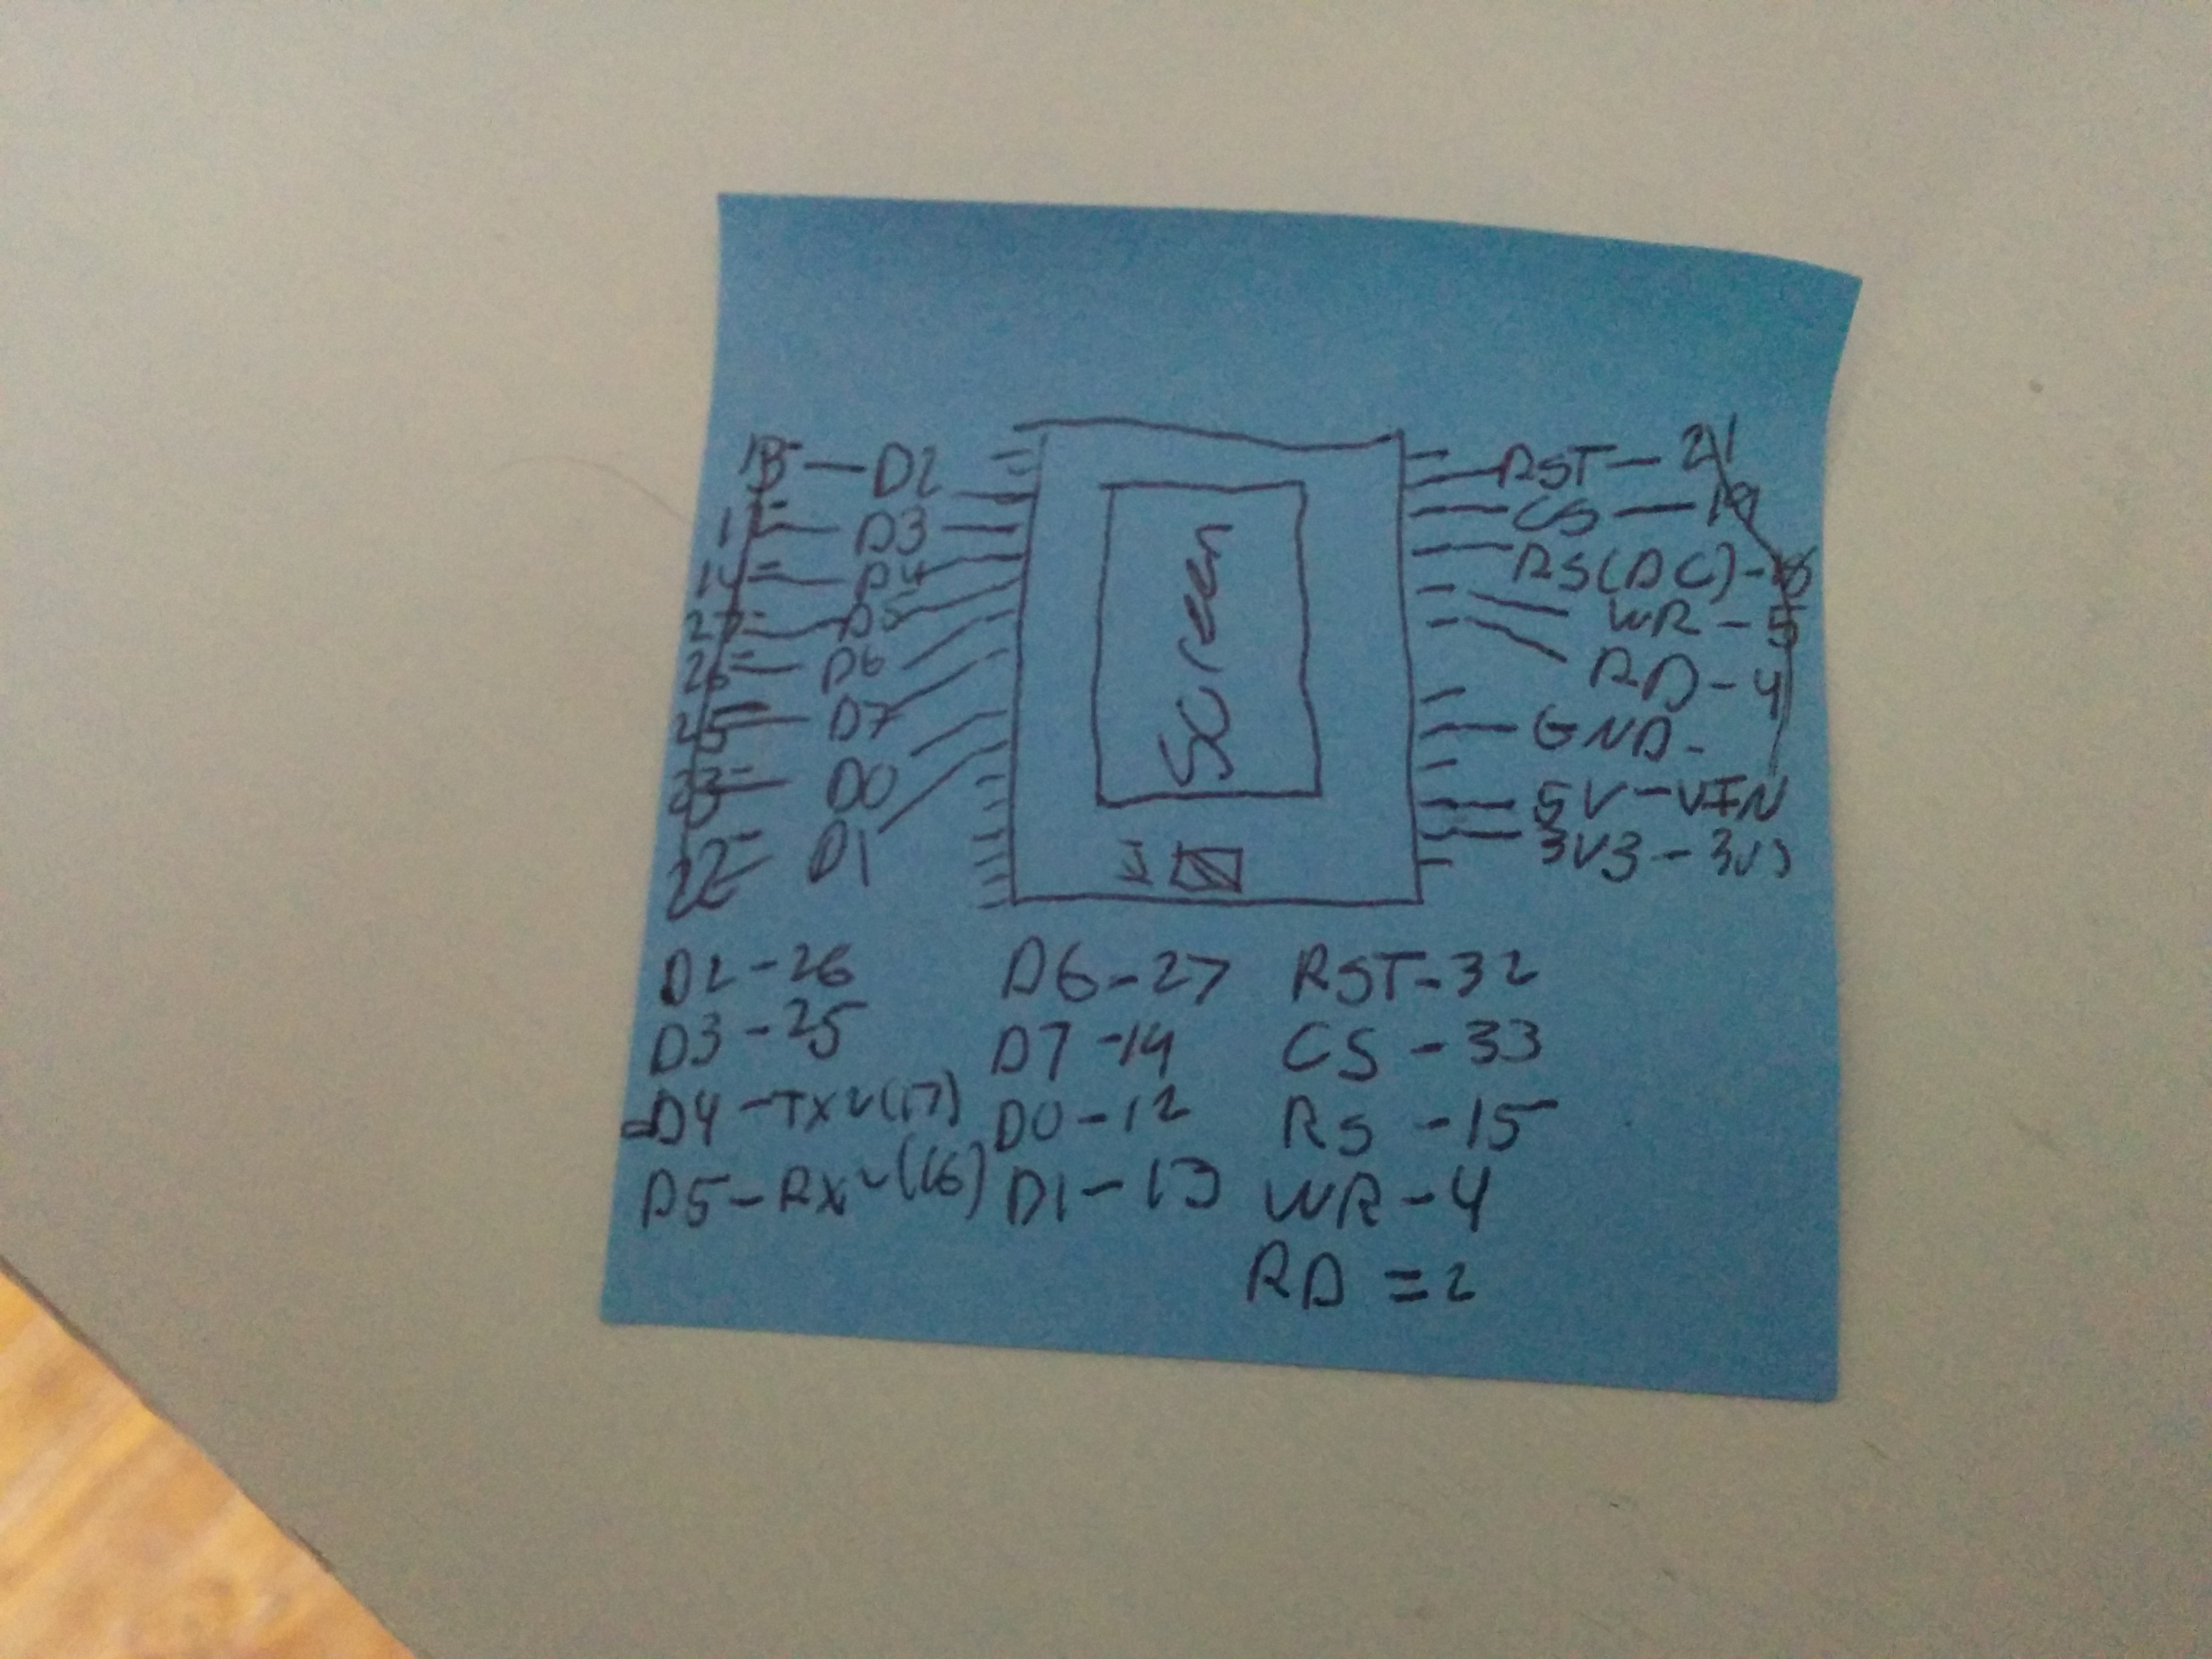 D2
D3
D4
D5
26 - D6
25 - D7
23 - D0
22 - D1
Screen
RST - 21
CS - 19
RS(DC) - 18
WR - 5
RD - 4
GND -
5V - VIN
3V3 - 3V3
D2 - 26
D3 - 25
D4 - TX2(17)
D5 - RX2(16)
D6 - 27
D7 - 14
D0 - 12
D1 - 13
RST - 32
CS - 33
RS - 15
WR - 4
RD = 2